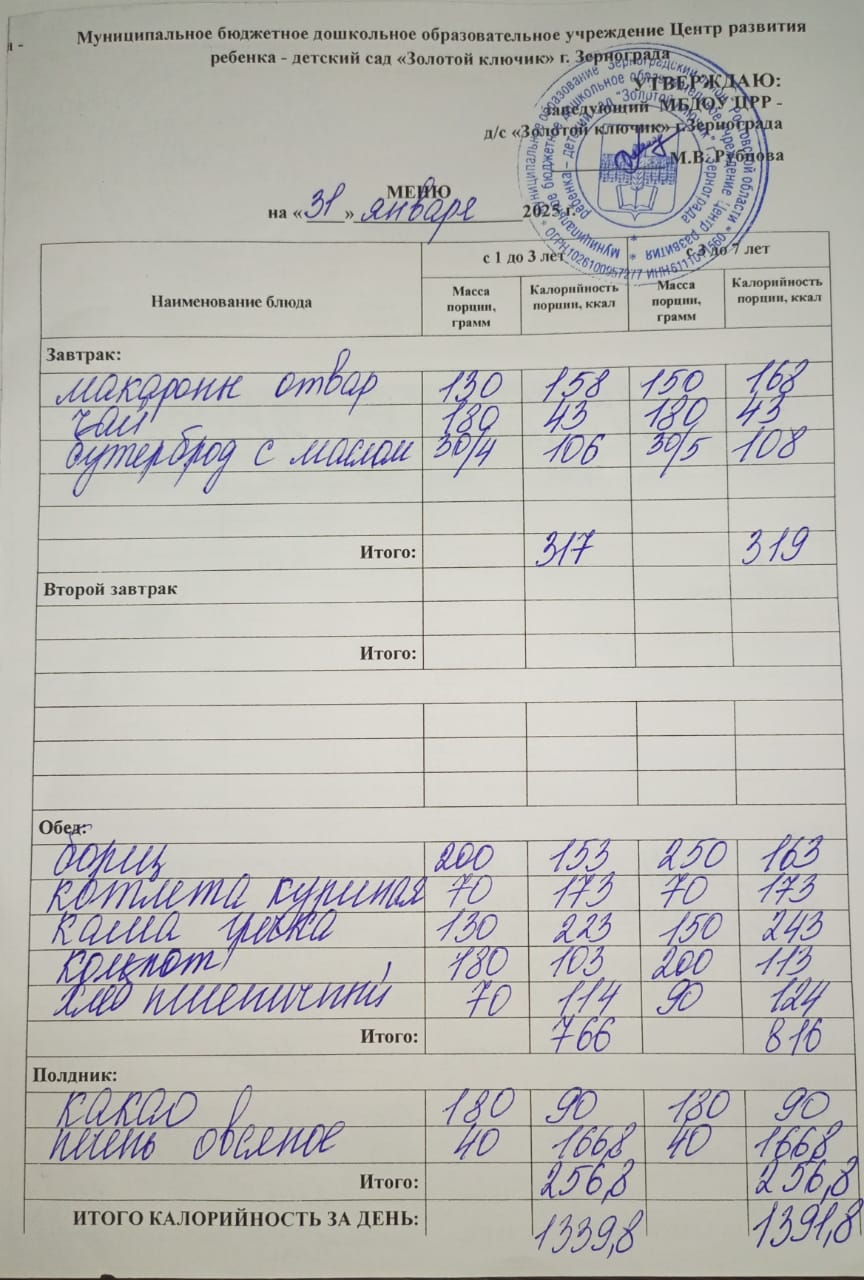 Муниципальное бюджетное дошкольное образовательное учреждение Центр развития
ребенка - детский сад «Золотой ключик» г. Зернограда
УТВЕРЖДАЮ:
заведующий МБДОУ ЦРР -
д/с «Золотой ключик» г.Зернограда
М.В. Рубцова
МЕНЮ
на «31» января 2025 г.
Наименование блюда с 1 до 3 лет с 3 до 7 лет
Масса порции, грамм Калорийность порции, ккал Масса порции, грамм Калорийность порции, ккал
Завтрак:
макароны отвар 130 158 150 168
чай 180 43 180 43
бутерброд с маслом 30/4 106 30/5 108
Итого: 317 319
Второй завтрак
Итого:
Обед:
борщ 200 153 250 163
котлета куриная 70 173 70 173
каша гречка 130 223 150 243
компот 180 103 200 113
хлеб пшеничный 70 114 90 124
Итого: 766 816
Полдник:
какао 180 90 180 90
печень овсяное 40 166,8 40 166,8
Итого: 256,8 256,8
ИТОГО КАЛОРИЙНОСТЬ ЗА ДЕНЬ: 1339,8 1391,8